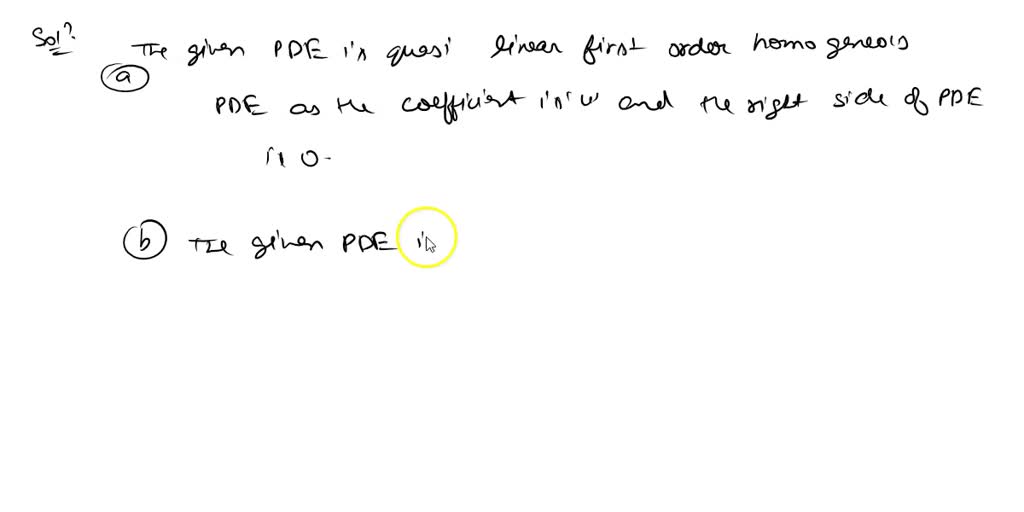 Sol?
The given PDE is quasi linear first order homogeneois
(a)
PDE as the coefficient is 'u' and the right side of PDE
is 0.
(b) The given PDE i